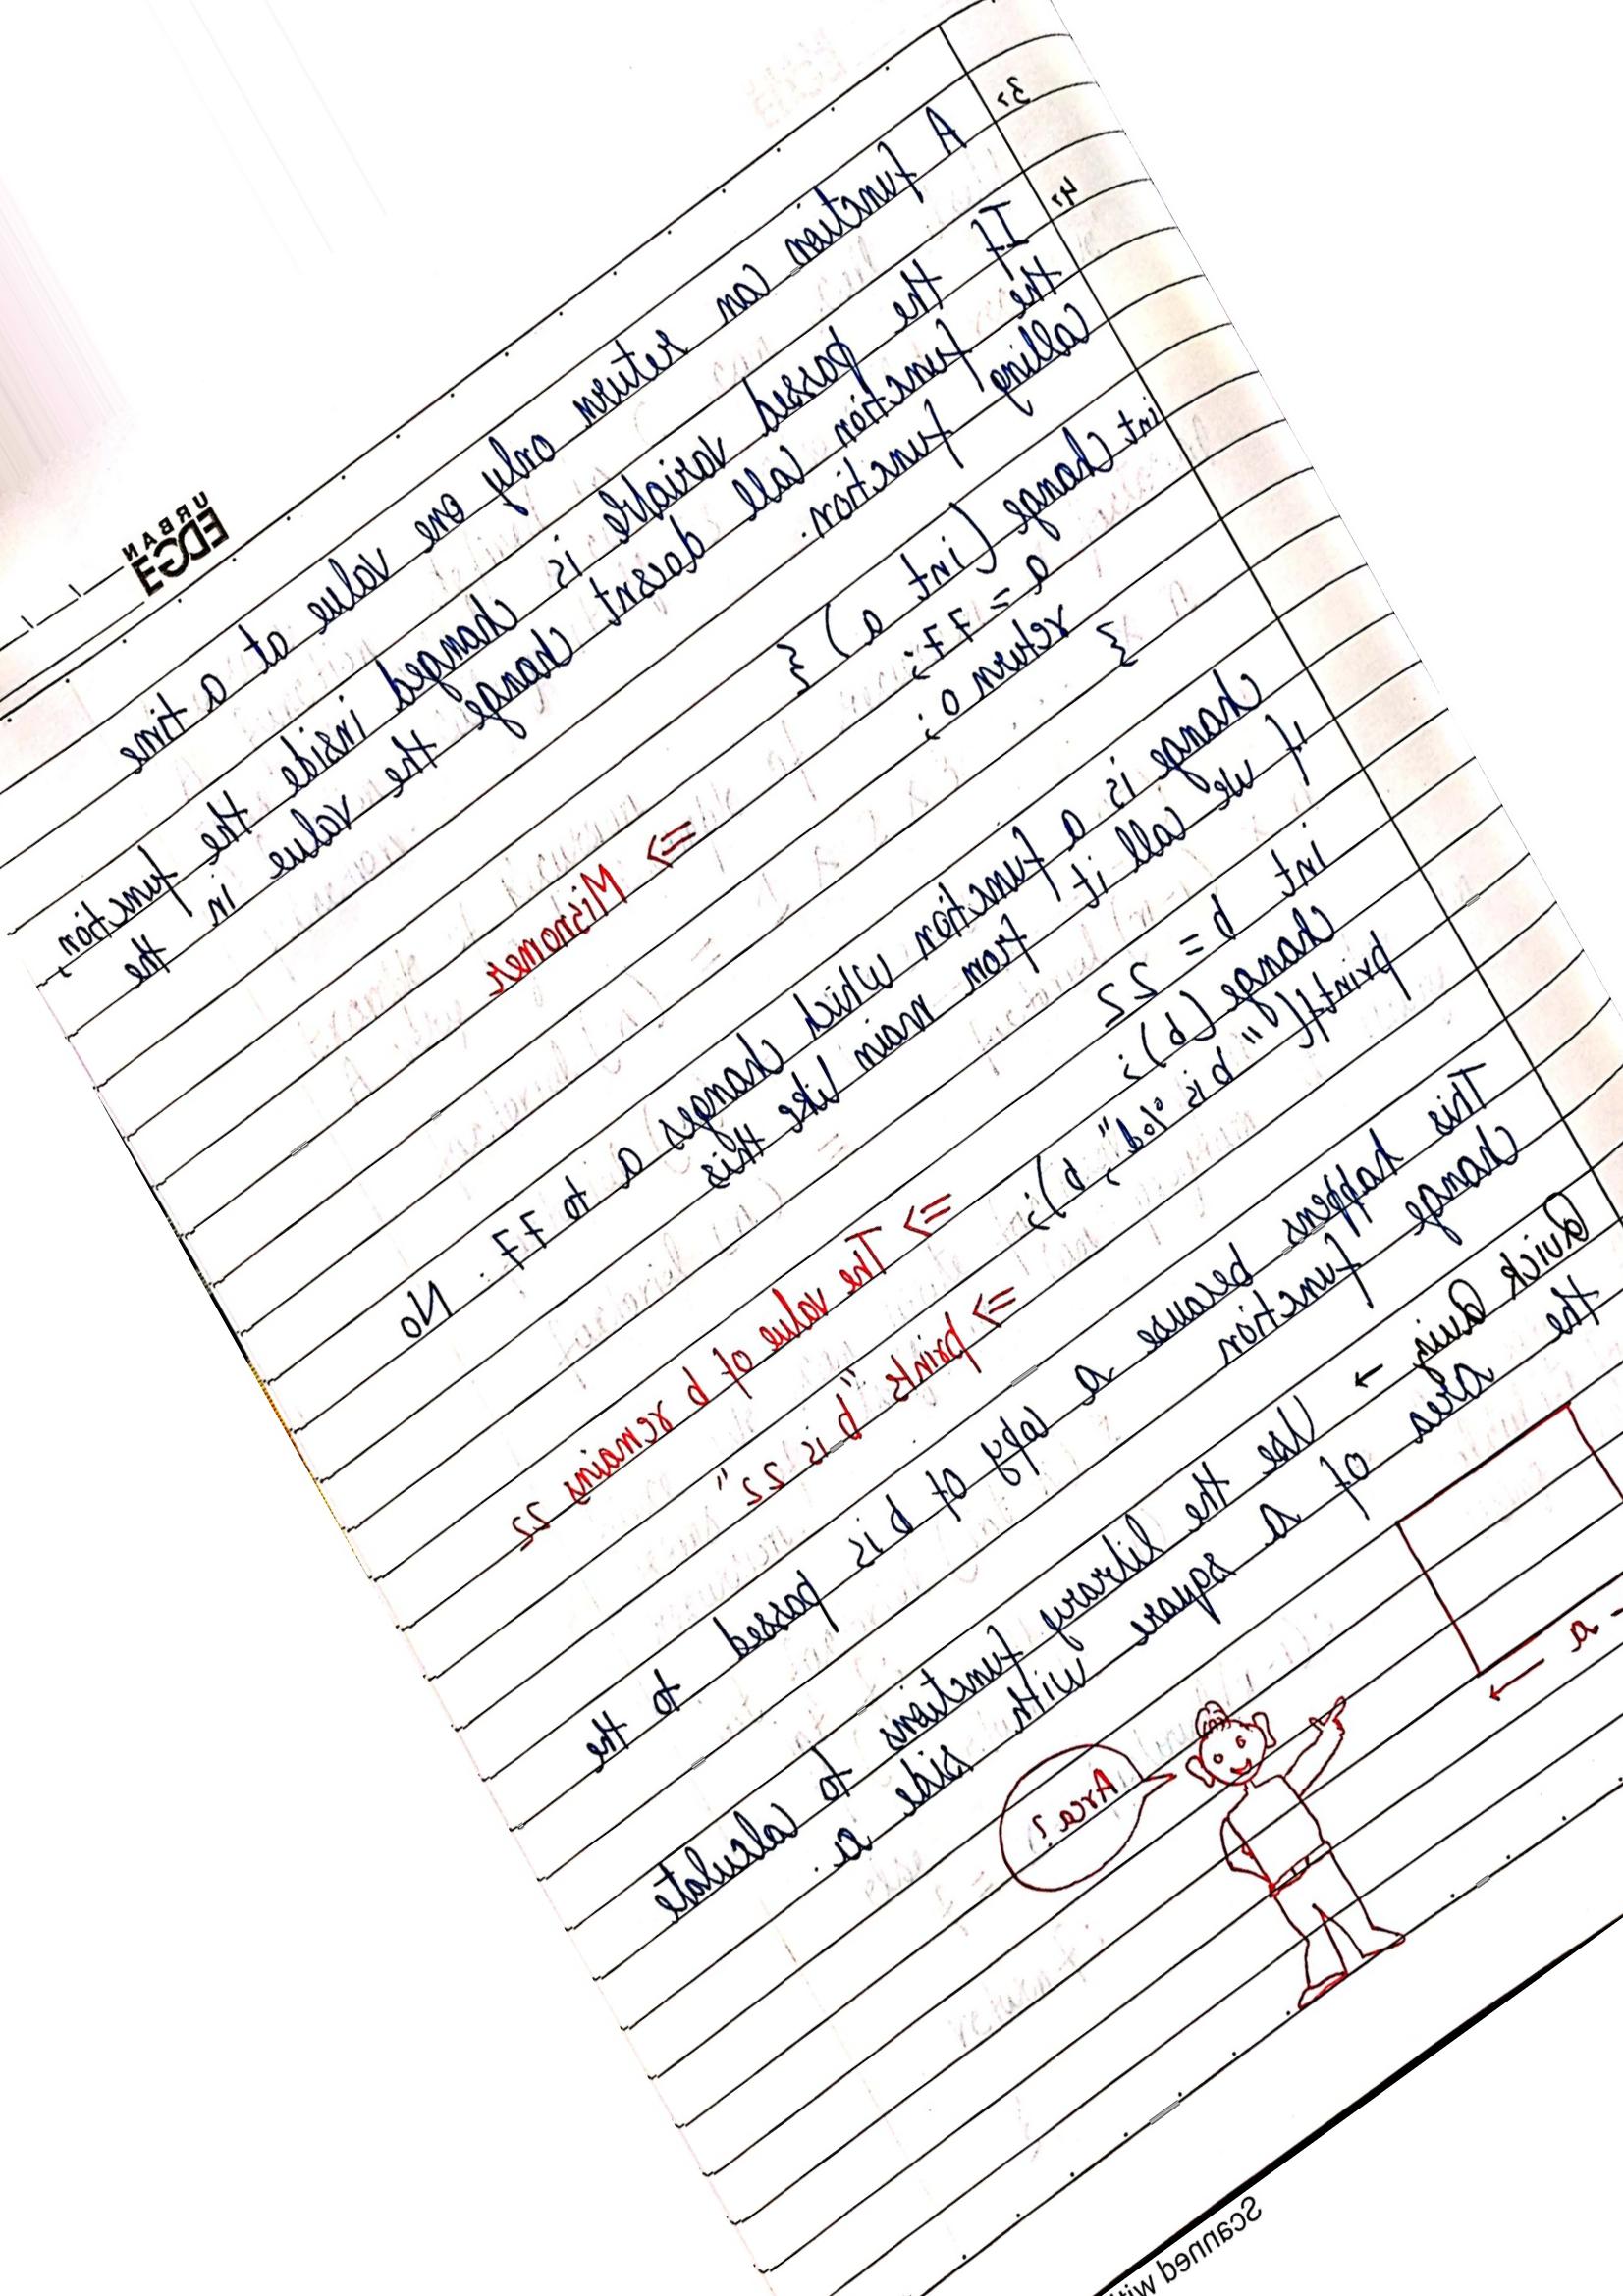 URBAN
EDGE
3,
A function can return only one value at a time
4,
If the passed variable is changed inside the function,
the function call doesnt change the value in the
calling function.
int change (int a) {
a = 77;
return 0;
}
=> Misnomer
change is a function which changes a to 77. No
if we call it from main like this
int b = 22
change (b);
printf("b is %d", b);
=> The value of b remains 22
=> prints "b is 22"
This happens because a copy of b is passed to the
change function
Quick Quiz → Use the library functions to calculate
the area of a square with side a.
← a -
Area?
Scanned with